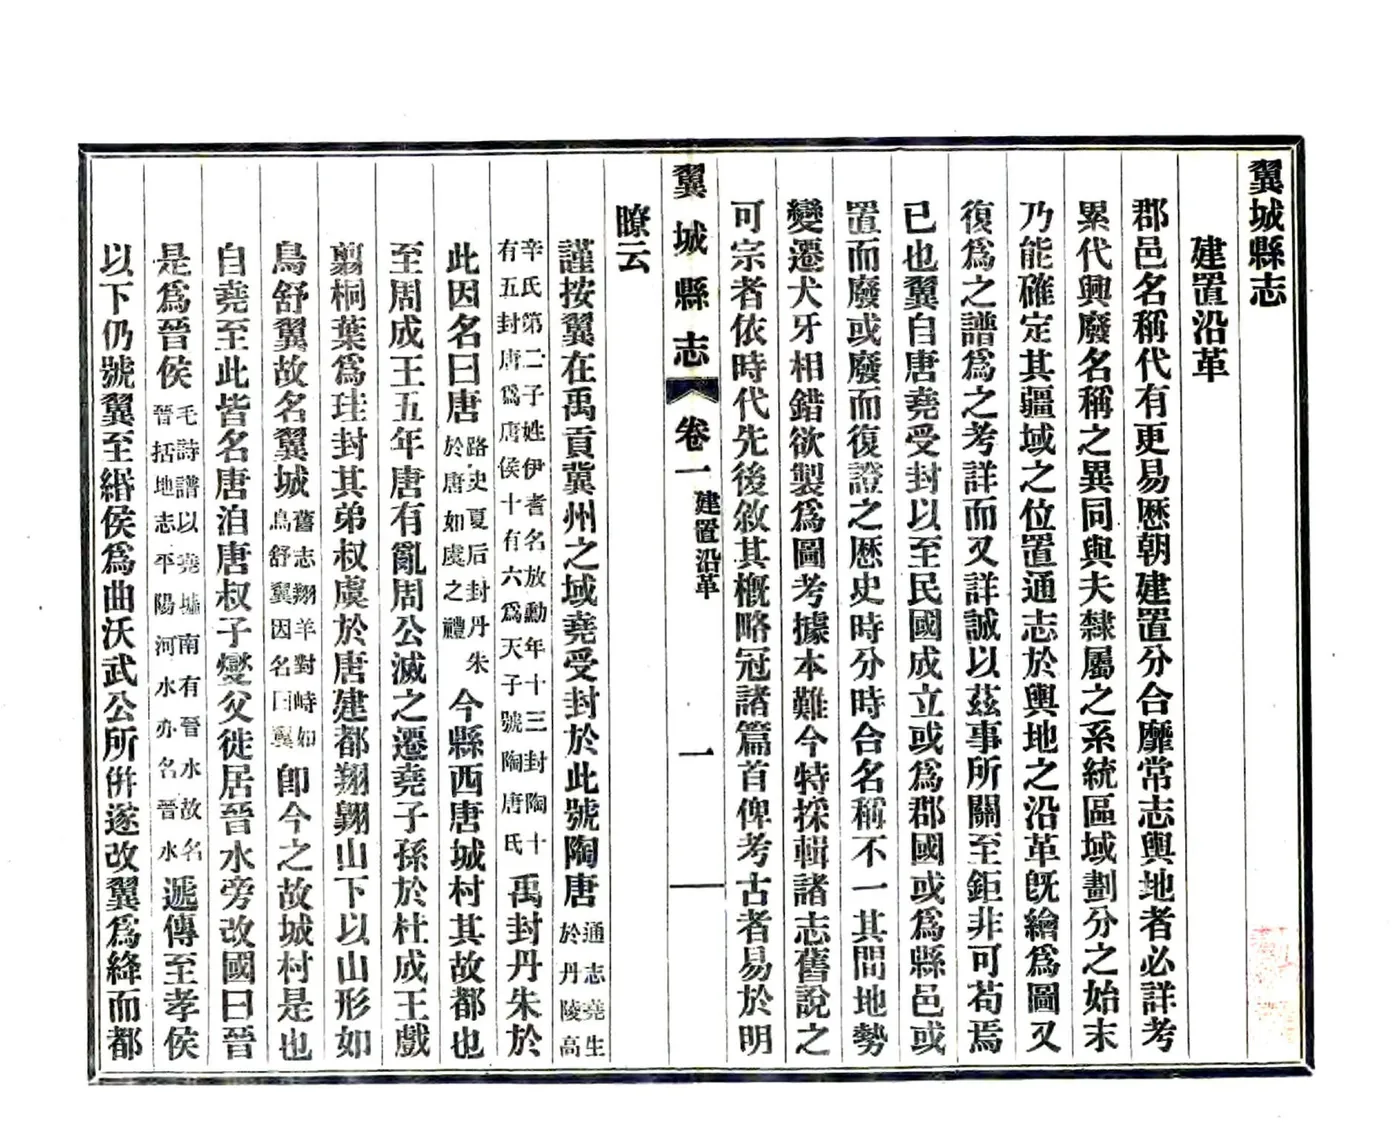 翼城縣志
建置沿革
郡邑名稱代有更易歷朝建置分合靡常志輿地者必詳考
累代興廢名稱之異同與夫隸屬之系統區域劃分之始末
乃能確定其疆域之位置通志於輿地之沿革旣繪爲圖又
復爲之譜爲之考詳而又詳誠以茲事所關至鉅非可苟焉
已也翼自唐堯受封以至民國成立或爲郡國或爲縣邑或
置而廢或廢而復證之歷史時分時合名稱不一其間地勢
變遷犬牙相錯欲製爲圖考據本難今特採輯諸志舊說之
可宗者依時代先後敘其槪略冠諸篇首俾考古者易於明
翼城縣志 卷一 建置沿革 一
瞭云
謹按翼在禹貢冀州之域堯受封於此號陶唐通志堯生於丹陵高
辛氏第二子姓伊耆名放勳年十三封陶十有五封唐爲唐侯十有六爲天子號陶唐氏禹封丹朱於
此因名曰唐路史夏后封丹朱於唐如虞之禮今縣西唐城村其故都也
至周成王五年唐有亂周公滅之遷堯子孫於杜成王戲
翦桐葉爲珪封其弟叔虞於唐建都翔翺山下以山形如
鳥舒翼故名翼城舊志翔羊對峙如鳥舒翼因名曰翼卽今之故城村是也
自堯至此皆名唐洎唐叔子燮父徙居晉水旁改國曰晉
是爲晉侯毛詩譜以堯墟南有晉水故名晉括地志平陽河水亦名晉水遞傳至孝侯
以下仍號翼至緡侯爲曲沃武公所併遂改翼爲絳而都